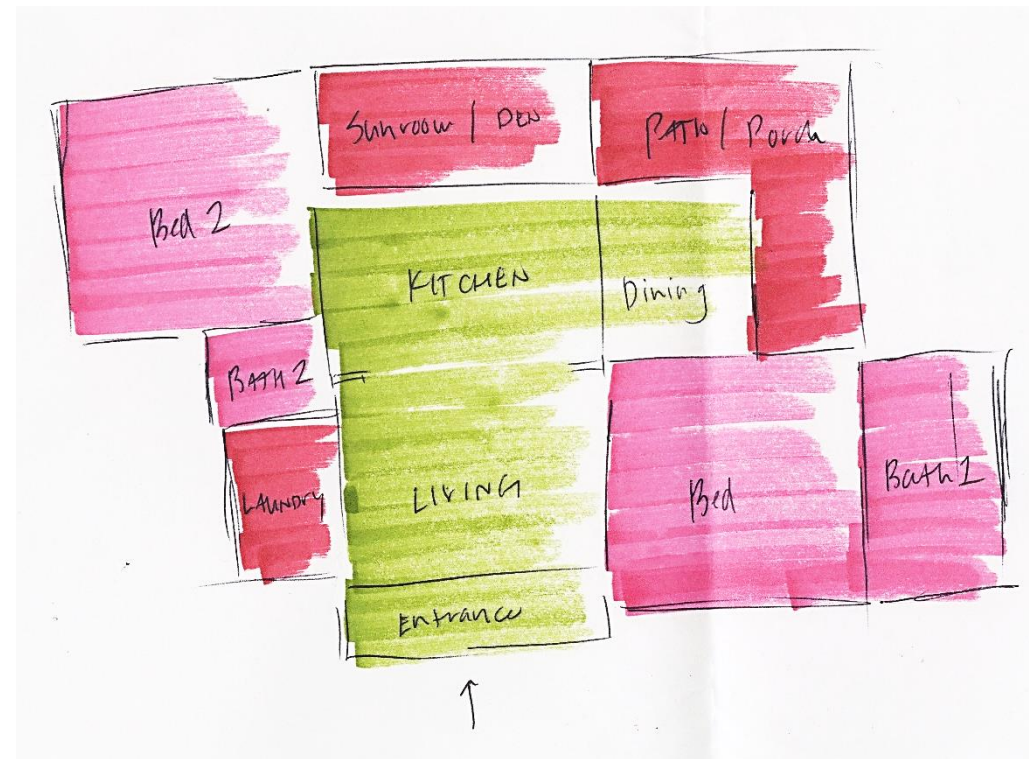 Sunroom / DEN
PATIO / Porch
Bed 2
KITCHEN
Dining
BATH 2
LAUNDRY
LIVING
Bed
Bath 1
Entrance